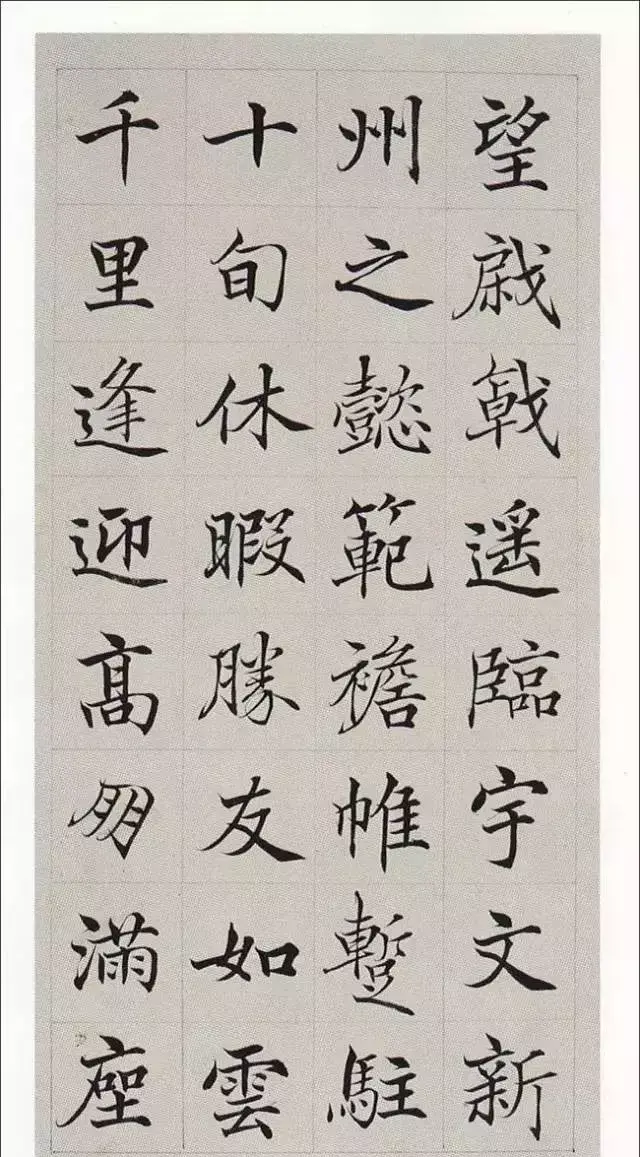 望戟遥臨宇文新
州之懿範襜帷蹔駐
十旬休暇勝友如雲
千里逢迎髙朋滿座